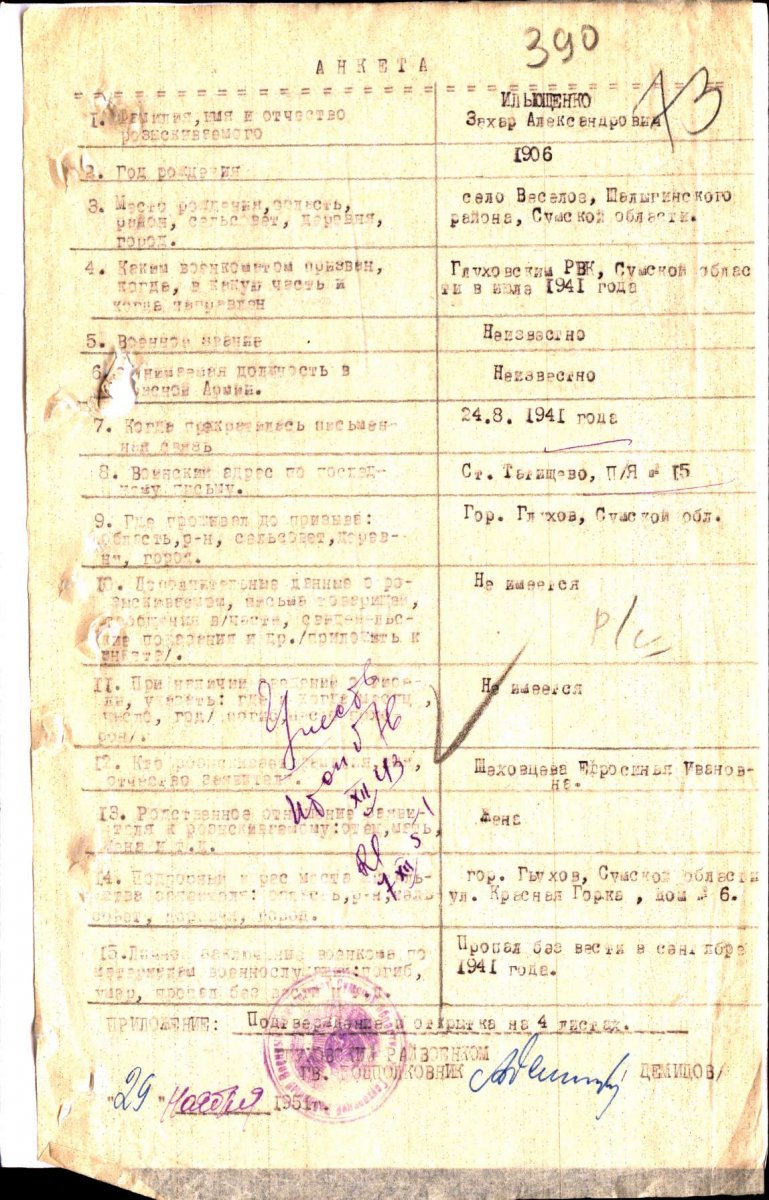 390
АНКЕТА
73
1. Фамилия, имя и отчество
розыскиваемого
ИЛЬЮЩЕНКО
Захар Александрович
2. Год рождения
1906
3. Место рождения, область,
район, сельсовет, деревня,
город.
село Веселое, Шалыгинского
района, Сумской области.
4. Каким военкоматом призван,
когда, в какую часть и
когда направлен
Глуховским РВК, Сумской облас
ти в июле 1941 года
5. Военное звание
Неизвестно
6. Занимаемая должность в
Красной Армии.
Неизвестно
7. Когда прекратилась письмен-
ная связь
24.8. 1941 года
8. Воинский адрес по послед-
нему письму.
Ст. Татищево, П/Я № 15
9. Где проживал до призыва:
область, р-н, сельсовет, дерев-
ня, город.
Гор. Глухов, Сумской обл.
10. Дополнительные данные о ро-
зыскиваемом, письма товарищей,
сообщения в/части, свидетельс-
кие показания и др. /приложить к
анкете/.
Не имеется
11. При наличии сведений
указать: где
число, год/
Не имеется
12. Кто розыскивает
отчество заявителя.
Шеховцева Ефросинья Иванов-
на.
13. Родственное отношение заяви-
теля к розыскиваемому: отец, мать,
жена и т.д.
Жена
14. Подробный адрес места
заявителя: область, р-н, сель-
совет, деревня, город.
гор. Глухов, Сумской области
ул. Красная Горка, дом № 6.
15. Личное заключение военкома по
военнослужащем: погиб,
умер, пропал без вести и т.д.
Пропал без вести в сентябре
1941 года.
ПРИЛОЖЕНИЕ: Подтверждение и открытка на 4 листах.
ГЛУХОВСКИЙ РАЙВОЕНКОМ
ГВ. ПОДПОЛКОВНИК / ДЕМИДОВ/
"29" ноября 1951г.